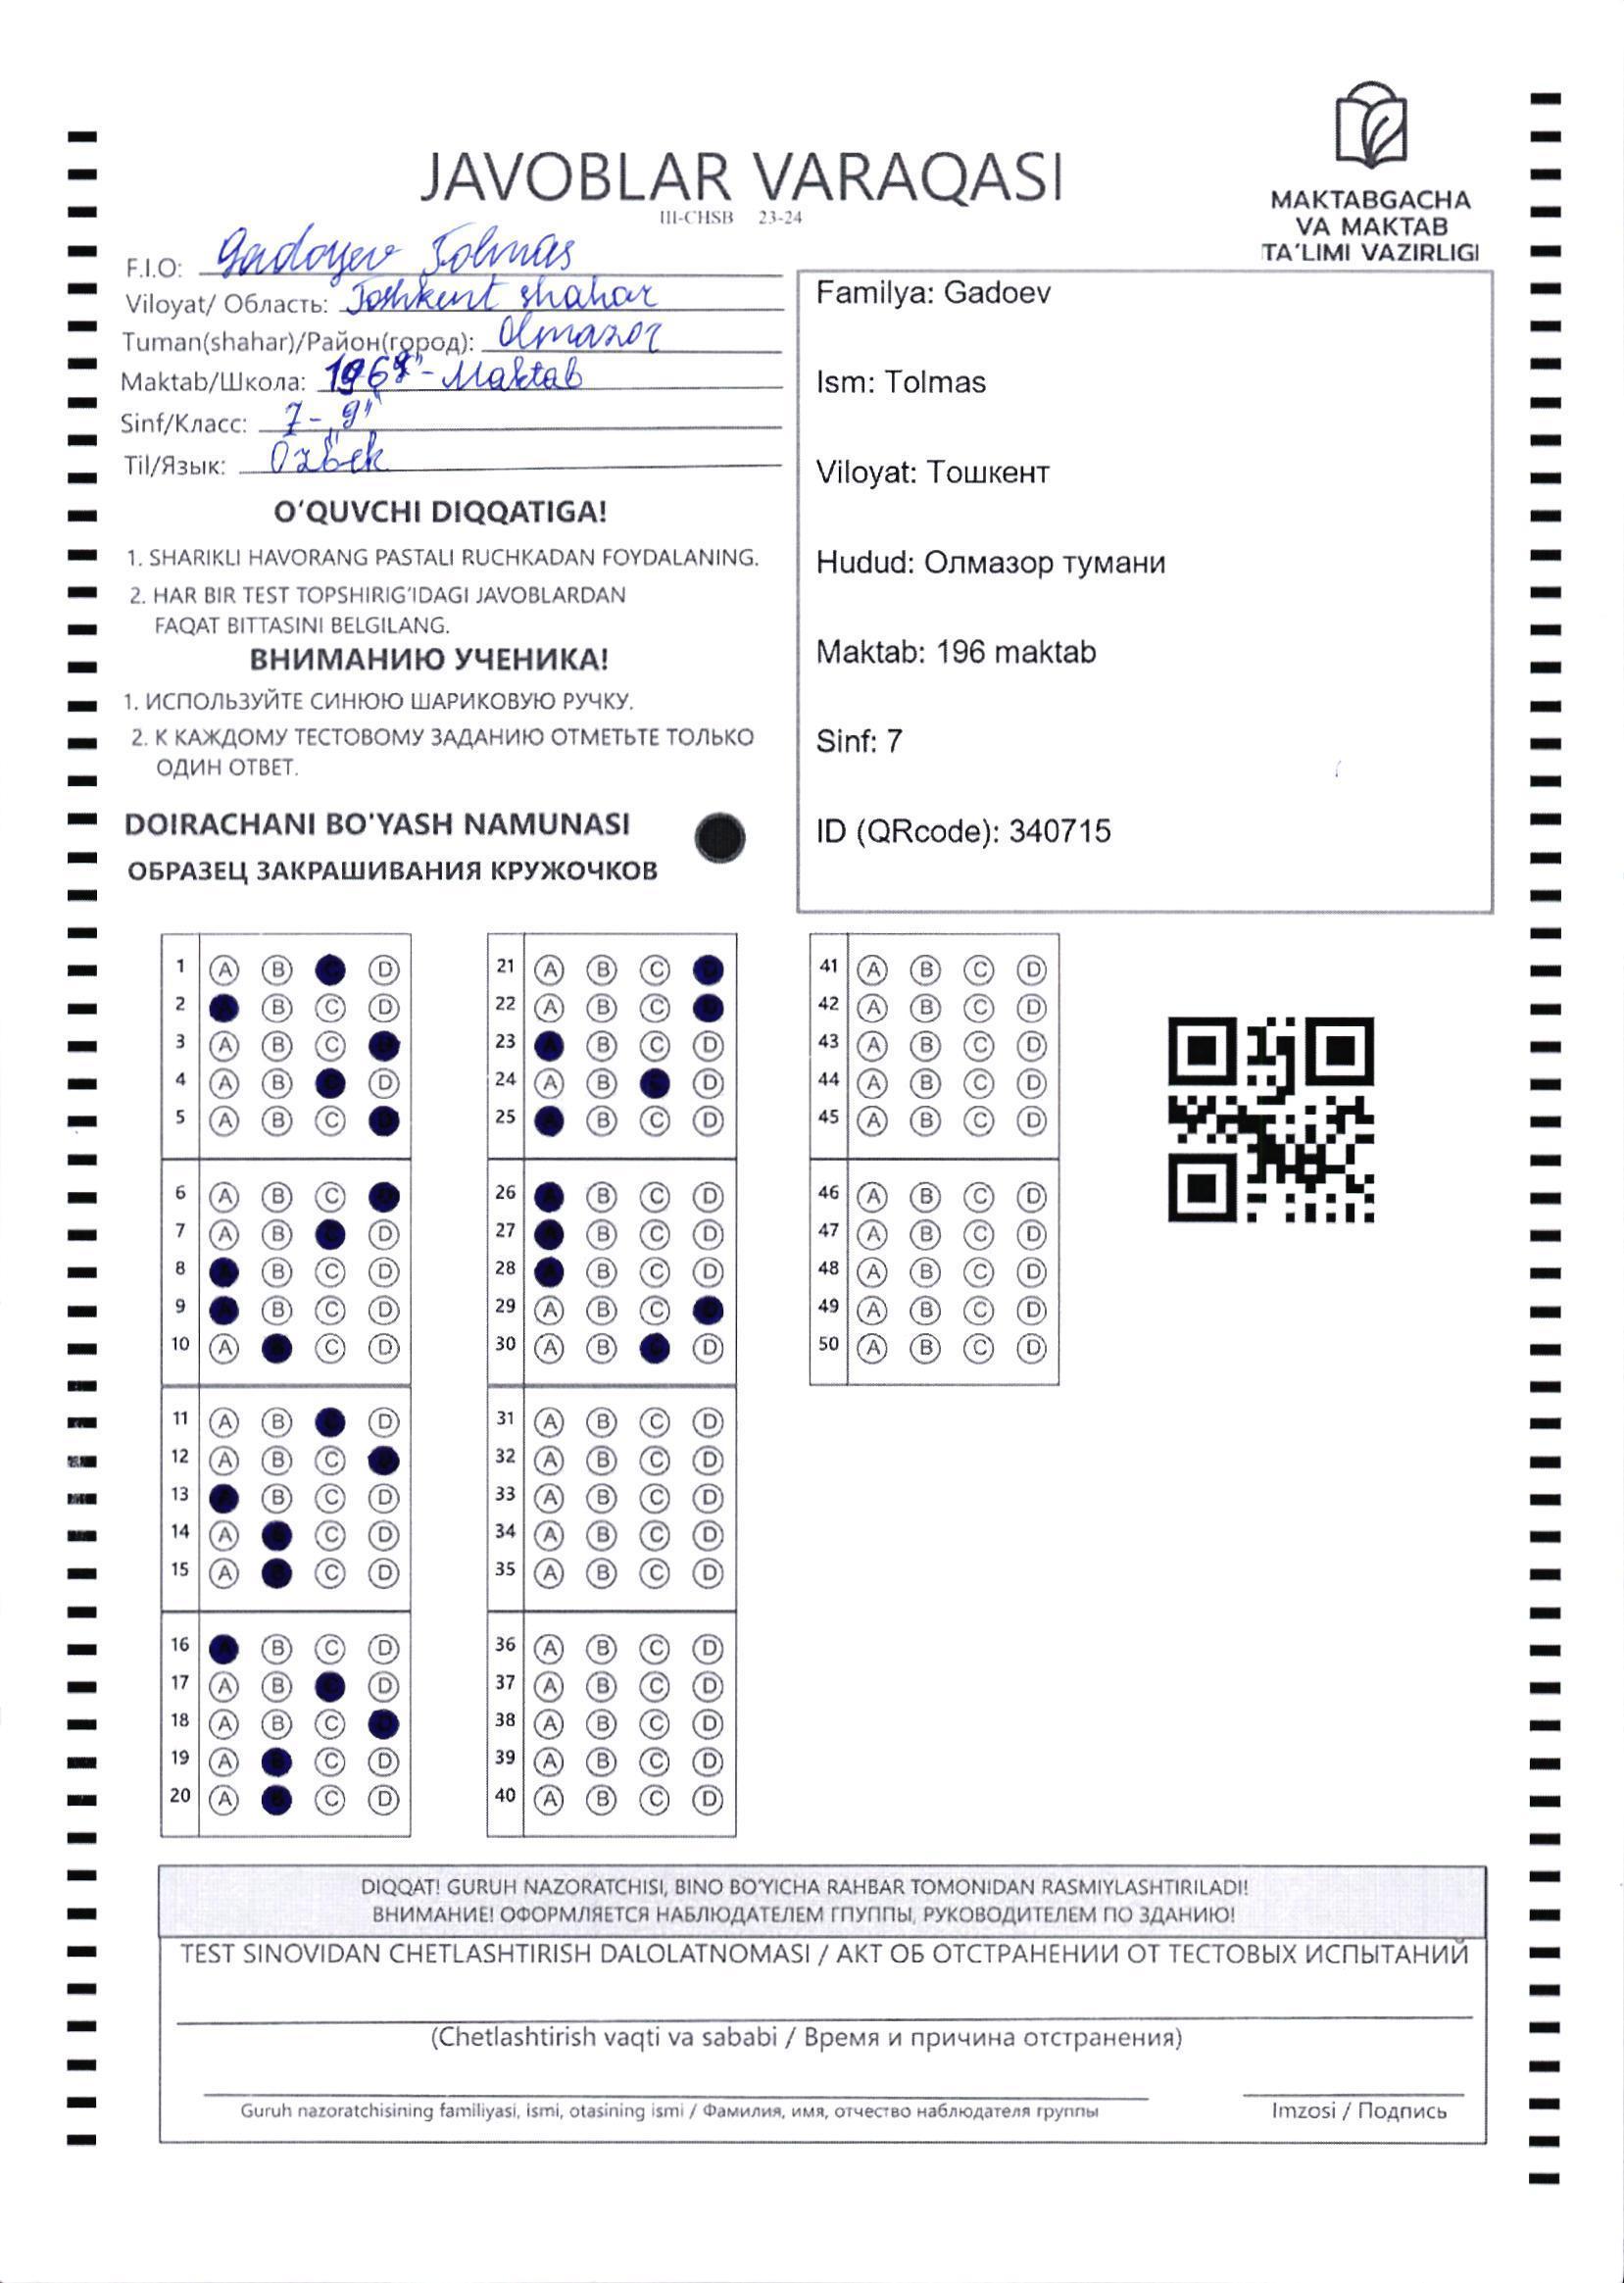 JAVOBLAR VARAQASI
III-CHSB 23-24
MAKTABGACHA
VA MAKTAB
TA'LIMI VAZIRLIGI
F.I.O: Gadoyev Tolmas
Viloyat/ Область: Toshkent shahar
Tuman(shahar)/Район(город): Olmazor
Maktab/Школа: 196 - Maktab
Sinf/Класс: 7-
Til/Язык: Ozbek
O'QUVCHI DIQQATIGA!
1. SHARIKLI HAVORANG PASTALI RUCHKADAN FOYDALANING.
2. HAR BIR TEST TOPSHIRIG'IDAGI JAVOBLARDAN
FAQAT BITTASINI BELGILANG.
ВНИМАНИЮ УЧЕНИКА!
1. ИСПОЛЬЗУЙТЕ СИНЮЮ ШАРИКОВУЮ РУЧКУ.
2. К КАЖДОМУ ТЕСТОВОМУ ЗАДАНИЮ ОТМЕТЬТЕ ТОЛЬКО
ОДИН ОТВЕТ.
DOIRACHANI BO'YASH NAMUNASI
ОБРАЗЕЦ ЗАКРАШИВАНИЯ КРУЖОЧКОВ
Familya: Gadoev
Ism: Tolmas
Viloyat: Тошкент
Hudud: Олмазор тумани
Maktab: 196 maktab
Sinf: 7
ID (QRcode): 340715
1 A B D
2 B C D
3 A B C
4 A B D
5 A B C
6 A B C
7 A B D
8 B C D
9 B C D
10 A C D
11 A B D
12 A B C
13 B C D
14 A C D
15 A C D
16 B C D
17 A B D
18 A B C
19 A C D
20 A C D
21 A B C
22 A B C
23 B C D
24 A B D
25 B C D
26 B C D
27 B C D
28 B C D
29 A B C
30 A B D
31 A B C D
32 A B C D
33 A B C D
34 A B C D
35 A B C D
36 A B C D
37 A B C D
38 A B C D
39 A B C D
40 A B C D
41 A B C D
42 A B C D
43 A B C D
44 A B C D
45 A B C D
46 A B C D
47 A B C D
48 A B C D
49 A B C D
50 A B C D
DIQQAT! GURUH NAZORATCHISI, BINO BO'YICHA RAHBAR TOMONIDAN RASMIYLASHTIRILADI!
ВНИМАНИЕ! ОФОРМЛЯЕТСЯ НАБЛЮДАТЕЛЕМ ГПУППЫ, РУКОВОДИТЕЛЕМ ПО ЗДАНИЮ!
TEST SINOVIDAN CHETLASHTIRISH DALOLATNOMASI / АКТ ОБ ОТСТРАНЕНИИ ОТ ТЕСТОВЫХ ИСПЫТАНИЙ
(Chetlashtirish vaqti va sababi / Время и причина отстранения)
Guruh nazoratchisining familiyasi, ismi, otasining ismi / Фамилия, имя, отчество наблюдателя группы
Imzosi / Подпись